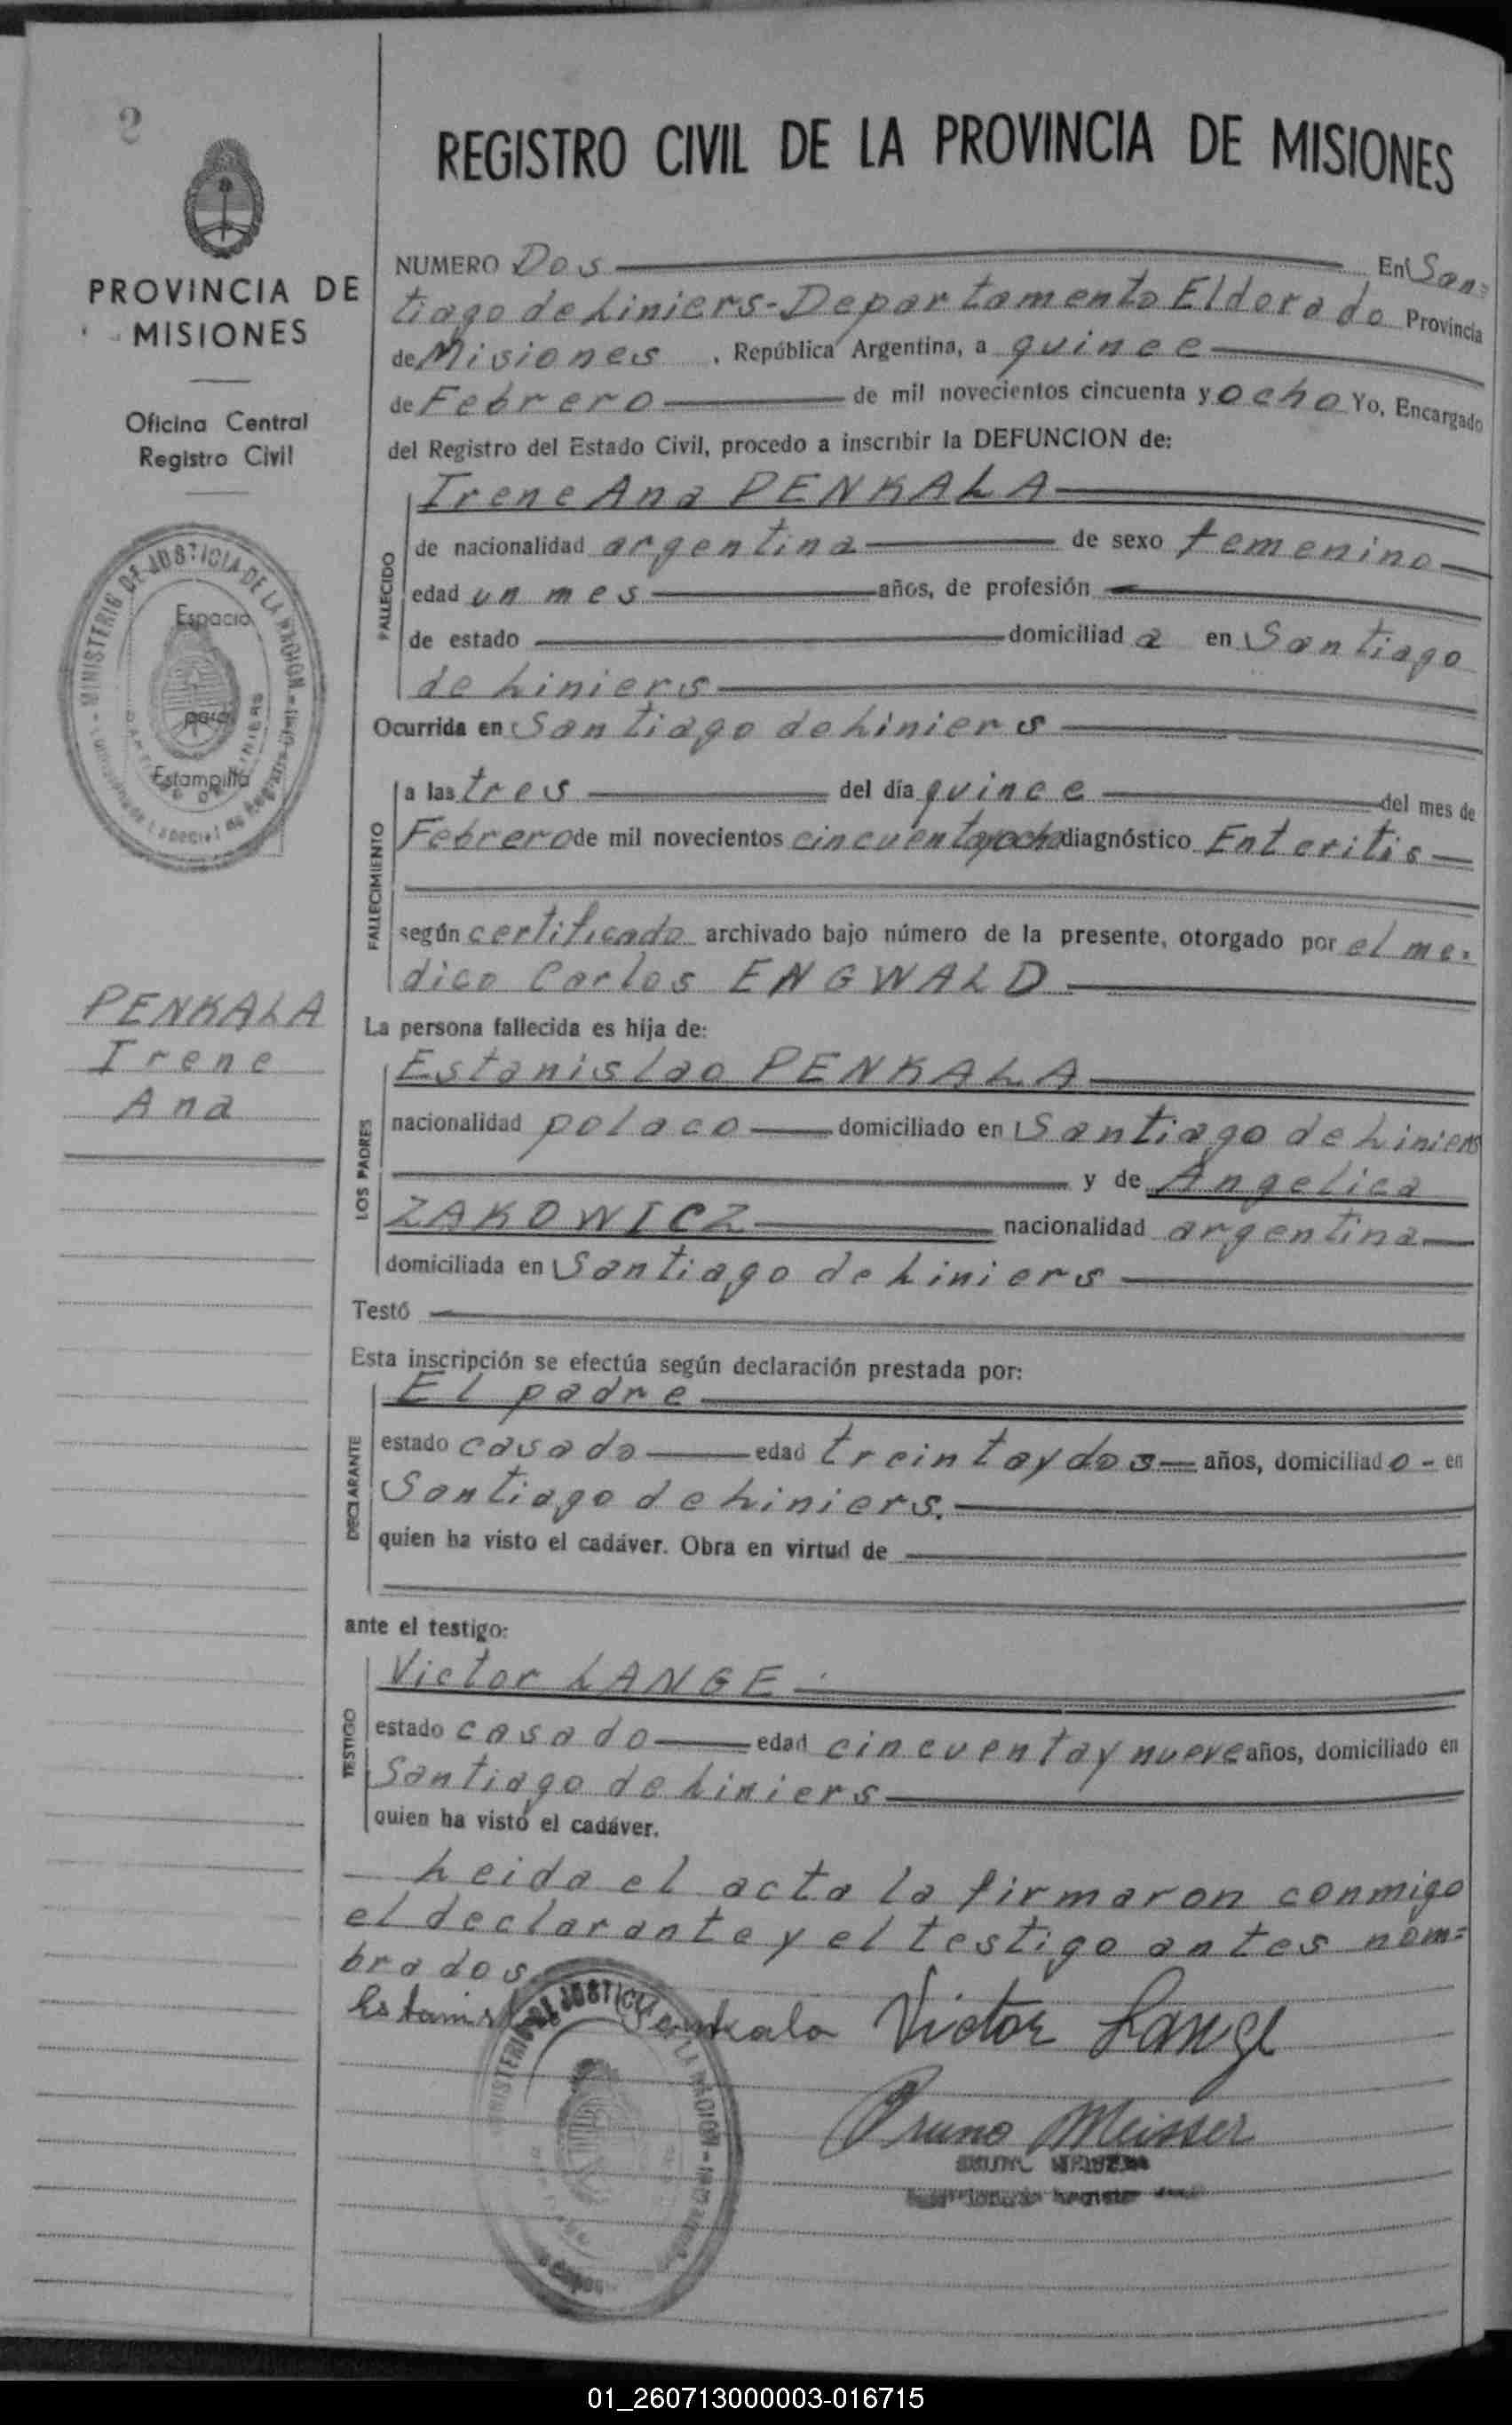 2
REGISTRO CIVIL DE LA PROVINCIA DE MISIONES
PROVINCIA DE
MISIONES
Oficina Central
Registro Civil
MINISTERIO DE JUSTICIA DE LA NACION
Espacio
para
Estampilla
PENKALA
Irene
Ana
NUMERO Dos En San=
tiago de Liniers-Departamento Eldorado Provincia
de Misiones, República Argentina, a quince
de Febrero de mil novecientos cincuenta y ocho Yo, Encargado
del Registro del Estado Civil, procedo a inscribir la DEFUNCION de:
FALLECIDO
Irene Ana PENKALA
de nacionalidad argentina de sexo femenino
edad un mes años, de profesión
de estado domiciliad a en Santiago
de Liniers
Ocurrida en Santiago de Liniers
FALLECIMIENTO
a las tres del día quince del mes de
Febrero de mil novecientos cincuentayocho diagnóstico Enteritis
según certificado archivado bajo número de la presente, otorgado por el me=
dico Carlos ENGWALD
La persona fallecida es hija de:
LOS PADRES
Estanislao PENKALA
nacionalidad polaco domiciliado en Santiago de Liniers
y de Angelica
ZAKOWICZ nacionalidad argentina
domiciliada en Santiago de Liniers
Testó
Esta inscripción se efectúa según declaración prestada por:
DECLARANTE
El padre
estado casado edad treintaydos años, domiciliad o - en
Santiago de Liniers.
quien ha visto el cadáver. Obra en virtud de
ante el testigo:
TESTIGO
Victor LANGE
estado casado edad cincuentaynueve años, domiciliado en
Santiago de Liniers
quien ha visto el cadáver.
Leida el acta la firmaron conmigo
el declarante y el testigo antes nom=
brados.
Penkala Victor Lange
Bruno Meisser
01_260713000003-016715